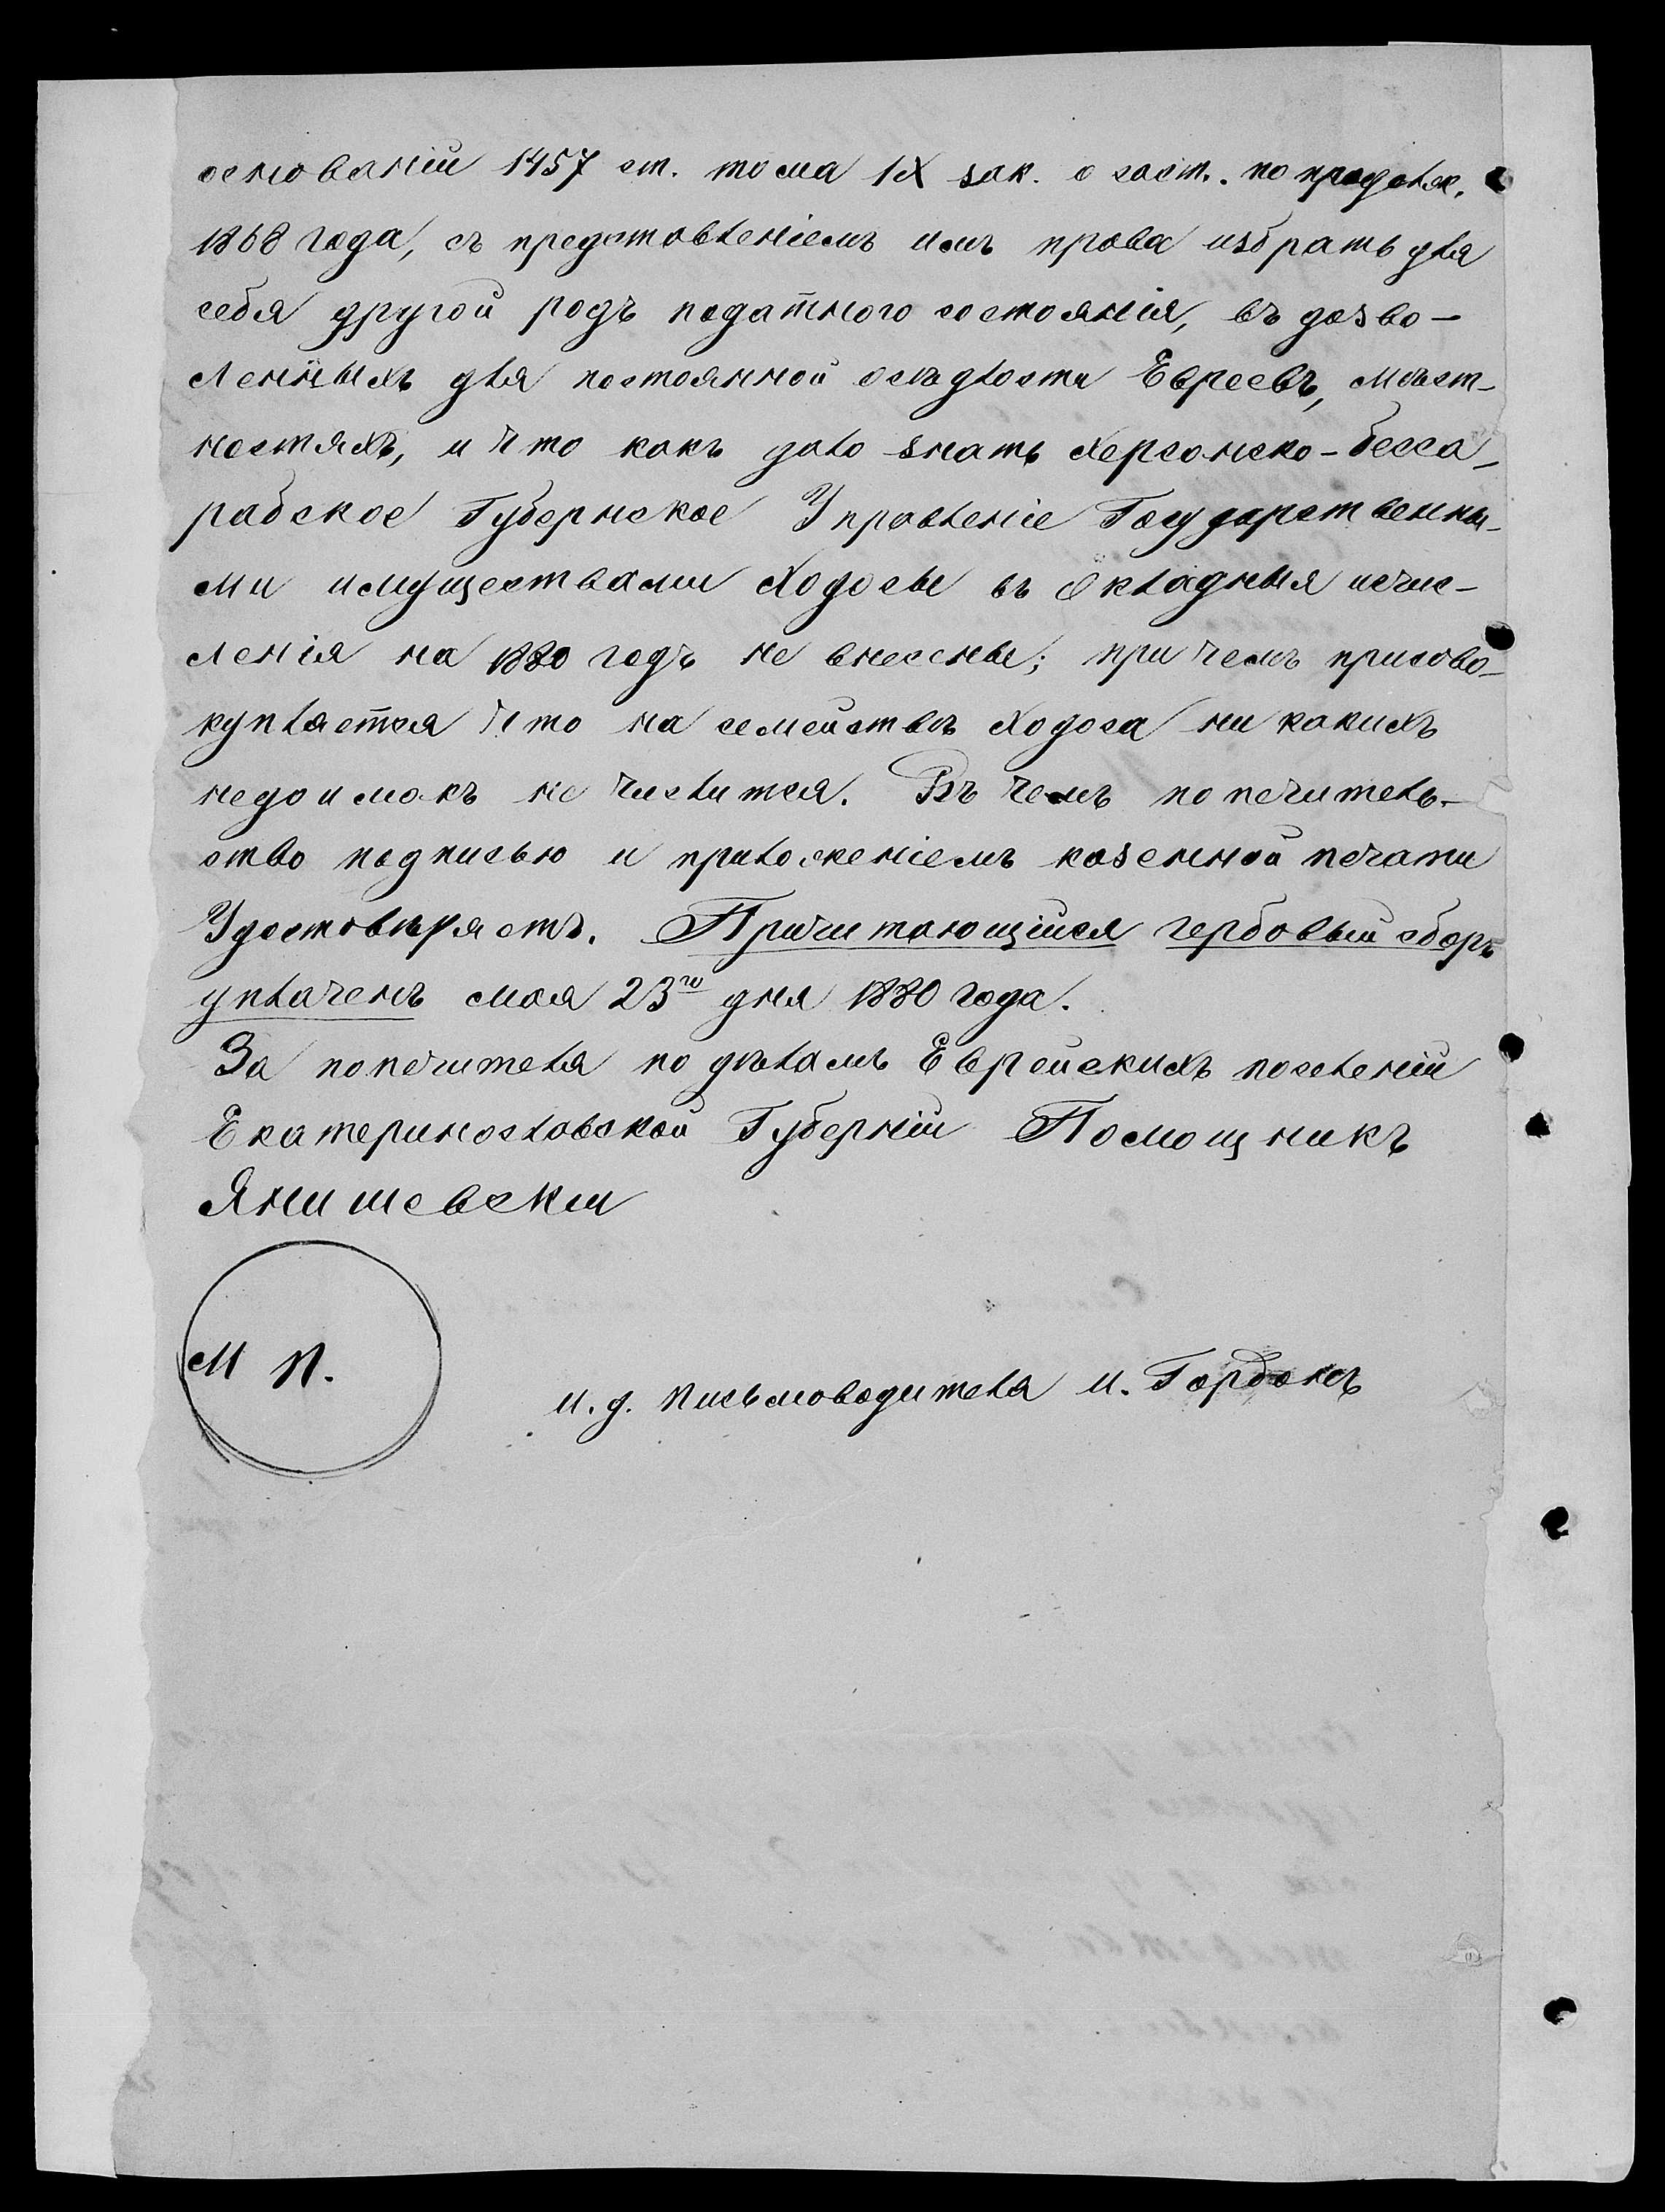 основаніи 1457 ст. тома IX зак. о сост. по продолж.
1868 года, съ предоставленіемъ имъ права избрать для
себя другой родъ податного состоянія, въ дозво-
ленныхъ для постоянной осѣдлости Евреевъ, мѣст-
ностяхъ, и что какъ дало знать Херсонско-Бесса-
рабское Губернское Управленіе Государственны-
ми имуществами Ходосы въ окладныя исчис-
ленія на 1880 годъ не внесены; при чемъ присово-
купляется что на семействѣ Ходоса ни какихъ
недоимокъ не числится. Въ чемъ попечитель-
ство подписью и приложеніемъ казенной печати
Удостовѣряетъ. Причитающійся гербовый сборъ
уплаченъ мая 23го дня 1880 года.
За попечителя по дѣламъ Еврейскихъ поселеній
Екатеринославской Губерніи Помощникъ
Янишевскій
М П.
И. д. Письмоводителя И. Гордонъ